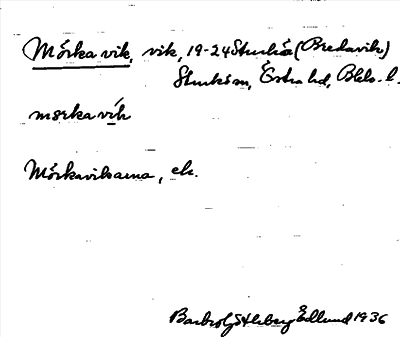 Mörka vik, vik, 19-24 Sturkö (Bredavik)
Sturkö sn, Östra hd, Blek. l.
mørka vík
Mörkaviksarna, ek.
Barbro Götlind Edlund 1936